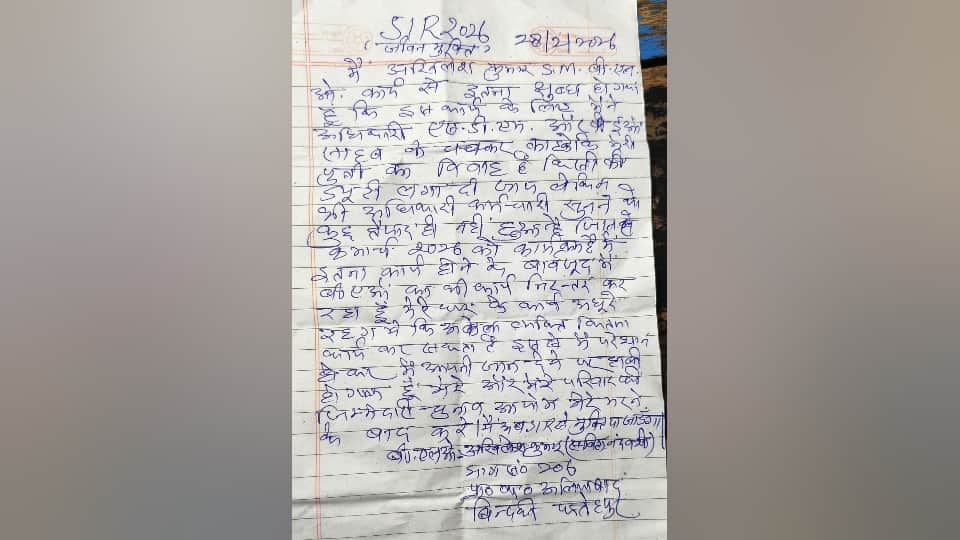 SIR 2026
(जीवन मुक्ति) 28/2/2026
मैं अखिलेश कुमार S.M. बी.एल.
ओ. कार्य से इतना क्षुब्ध हो गया
हूँ कि इस कार्य के लिए मैंने
अधिकारी एस.डी.एम. और ईओ
साहब के चक्कर काटे कि मेरी
पुत्री का विवाह है किसी की
ड्यूटी लगा दी जाय लेकिन
कोई अधिकारी कर्मचारी सुनने को
कुछ तैयार ही नहीं हुआ है जिसके
8 मार्च 2026 को कार्यक्रम है मैं
इतना कार्य होने के बावजूद मैं
बीएलओ का भी कार्य निरन्तर कर
रहा हूँ मेरे घर के कार्य अधूरे
रह गये कि अकेला व्यक्ति कितना
कार्य कर सकता है इस से मैं परेशान
होकर मैं अपनी जान देने पर हावी
हो गया हूँ मेरे और मेरे परिवार की
जिम्मेदारी चुनाव आयोग मेरे मरने
के बाद करे। मैं अब SIR से मुक्ति पा जाऊँगा।
बी.एलओ. अखिलेश कुमार
भाग सं० 206
प्रा० पा० अलियाबाद
बिन्दकी फतेहपुर